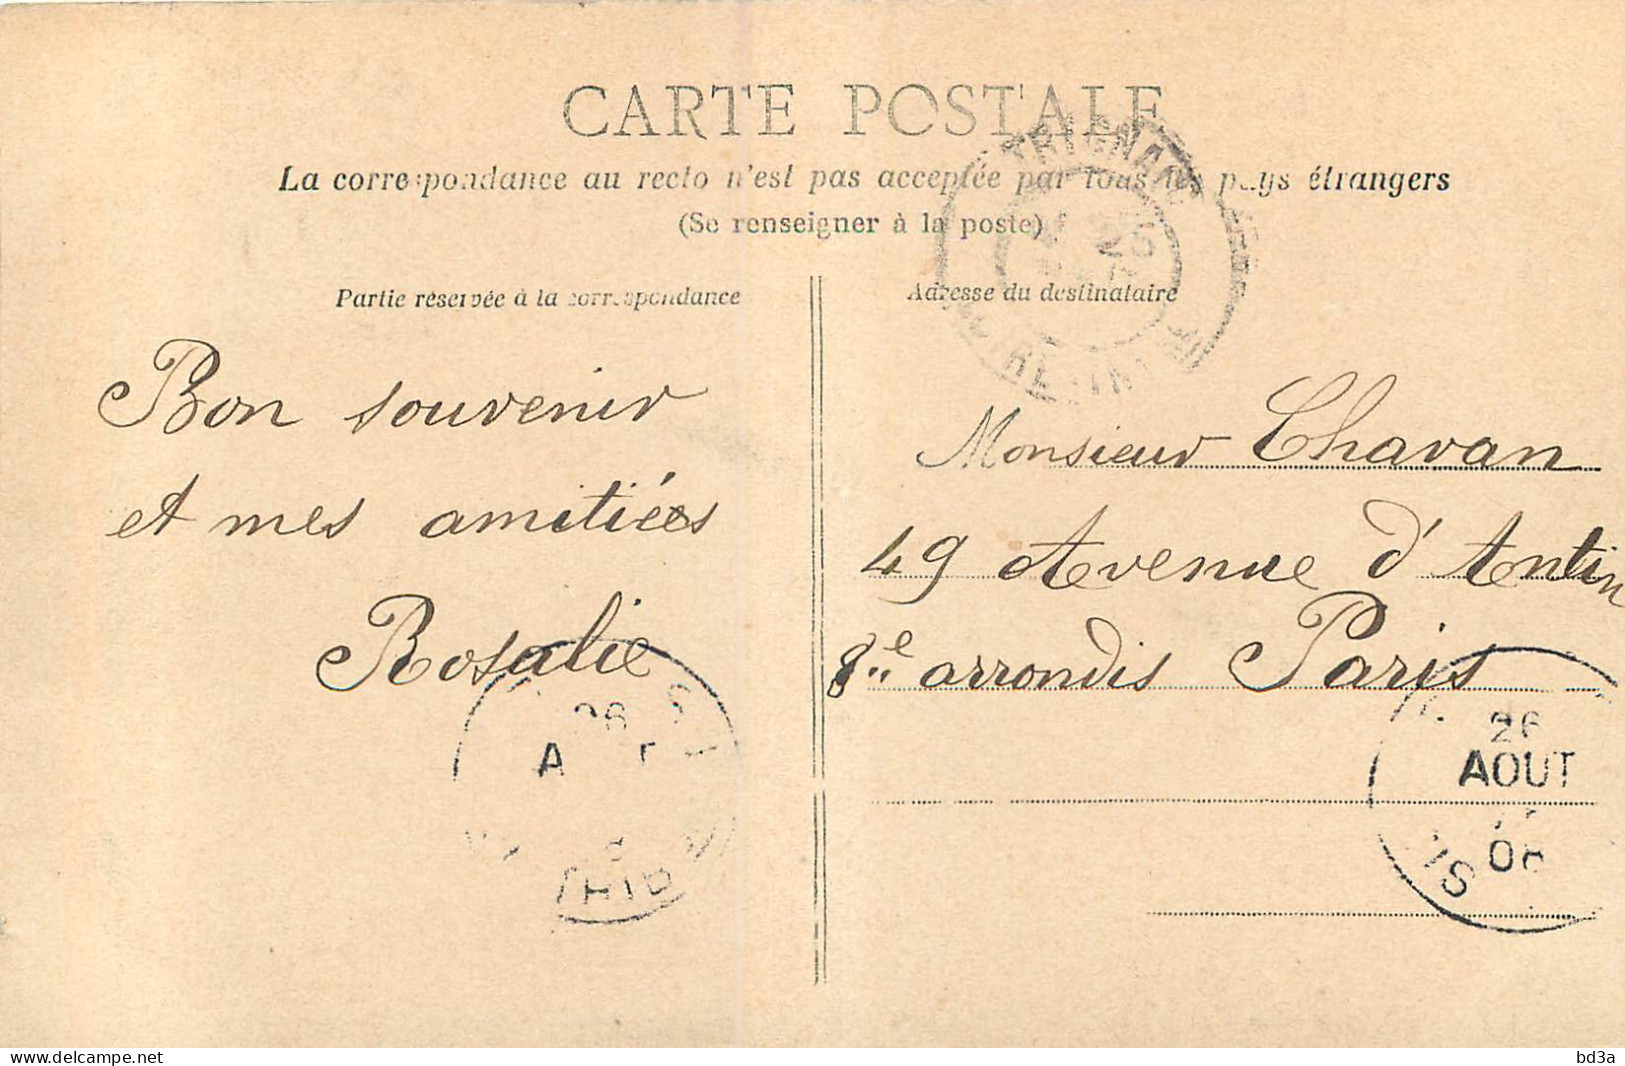 CARTE POSTALE
La correspondance au recto n'est pas acceptée par tous les pays étrangers
(Se renseigner à la poste)
Partie réservée à la correspondance
Adresse du destinataire
Bon souvenir
et mes amitiées
Rosalie
Monsieur Chavan
49 Avenue d'Antin
8e arrondis Paris
TRIGNAC
25
LOIRE-INFRE
26
A
26
AOUT
06
delcampe.net
bd3a